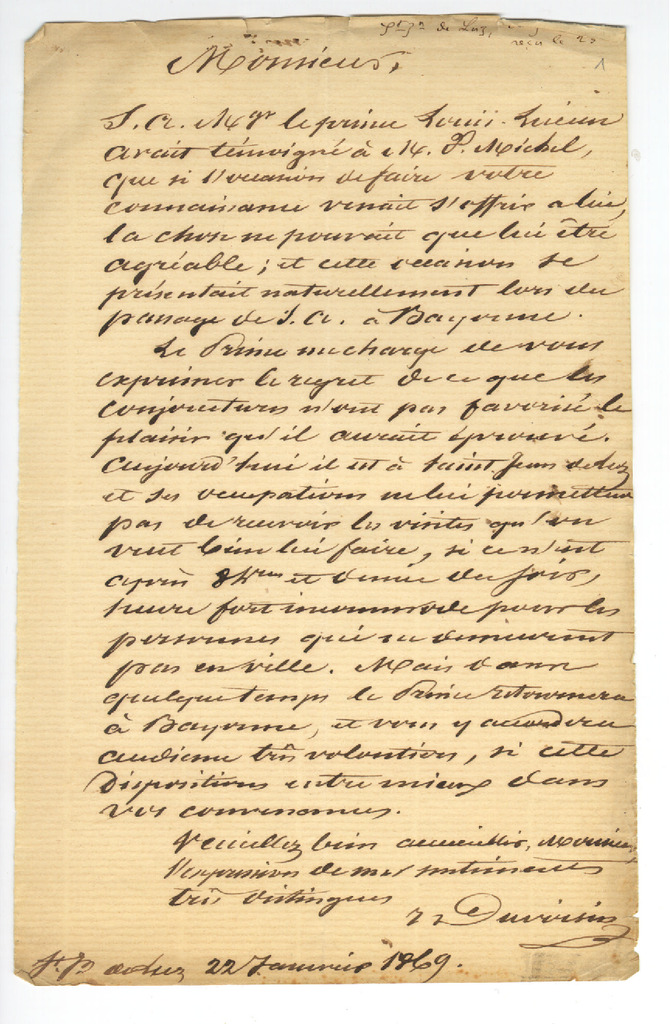 St Jn de Luz,
reçu le 23
1
Monsieur,
S. A. Mgr le prince Louis-Lucien
avait témoigné à M. F. Michel,
que si l'occasion de faire votre
connaissance venait s'offrir a lui,
la chose ne pouvait que lui être
agréable; et cette occasion se
présentait naturellement lors du
passage de S. A. à Bayonne.
Le Prince me charge de vous
exprimer le regret de ce que les
conjonctures n'ont pas favorisé le
plaisir qu'il aurait éprouvé.
Aujourd'hui il est à Saint Jean de Luz
et ses occupations ne lui permettent
pas de recevoir les visites qu'on
veut bien lui faire, si ce n'est
après 8 hres et demie du soir,
heure fort incommode pour les
personnes qui ne demeurent
pas en ville. Mais dans
quelque temps le Prince retournera
à Bayonne, et vous y accordera
audience très volontiers, si cette
disposition entre mieux dans
vos convenances.
Veuillez bien accueillir, Monsieur,
l'expression de mes sentiments
très distingués
Duvoisin
St Jn de Luz 22 Janvier 1869.